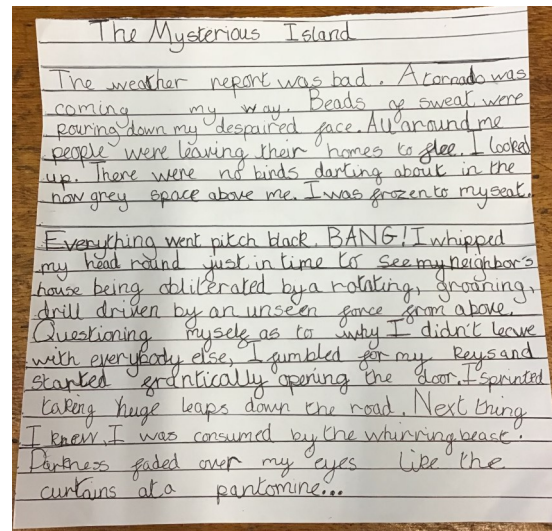 The Mysterious Island
The weather report was bad. A tornado was
coming my way. Beads of sweat were
pouring down my despaired face. All around me
people were leaving their homes to flee. I looked
up. There were no birds darting about in the
now grey space above me. I was frozen to my seat.
Everything went pitch black. BANG! I whipped
my head round just in time to see my neighbor's
house being obliterated by a rotating, groaning,
drill driven by an unseen force from above.
Questioning myself as to why I didn't leave
with everybody else, I fumbled for my keys and
started frantically opening the door. I sprinted
taking huge leaps down the road. Next thing
I knew, I was consumed by the whirring beast.
Darkness faded over my eyes like the
curtains at a pantomine...